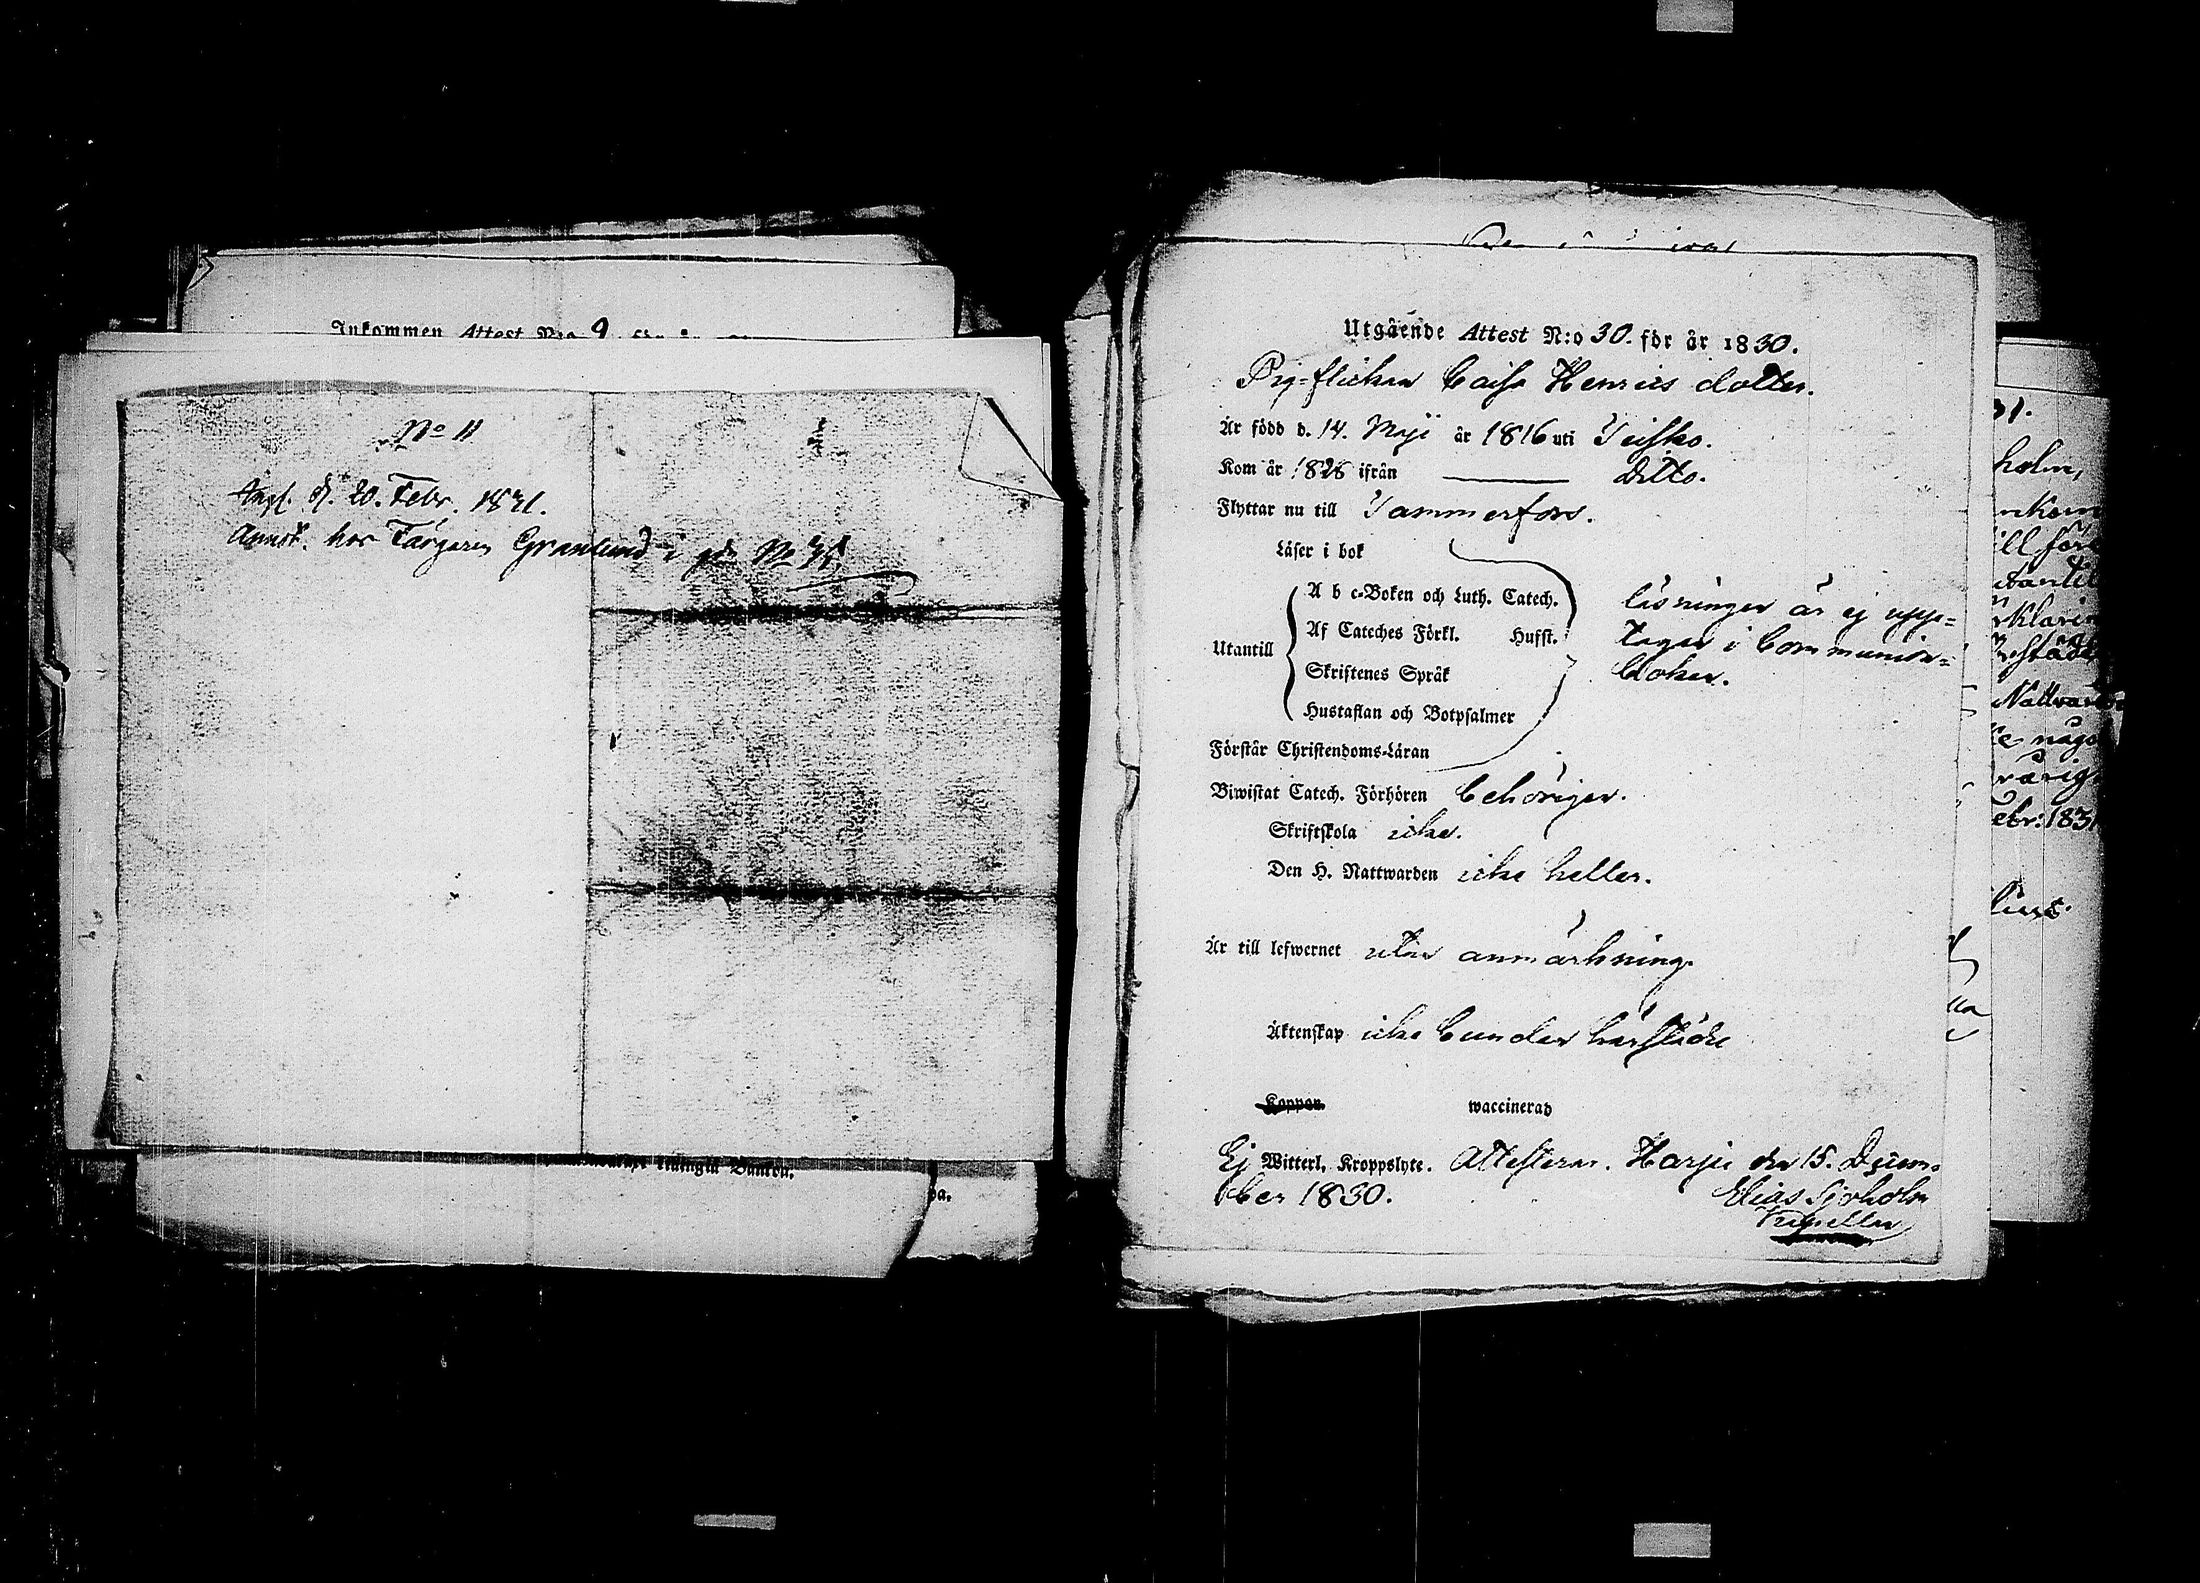 Inkommen Attest N:o 9
No 11
d. 20. Febr. 1831.
Annot. hos Färgaren Granlund i gdn No 35
Utgående Attest N:o 30. för år 1830.
Pig-flickan Caisa Henrics dotter.
Är född d. 14. Maji år 1816 uti Teisko.
Kom år 1828 ifrån ——— Ditto.
Flyttar nu till Tammerfors.
Läser i bok
A b c-Boken och Luth. Catech.
Af Cateches Förkl. Husst.
Utantill
Skriftenes Språk
Hustaflan och Botpsalmer
läsningen är ej uppe-
tagen i Communion-
boken.
Förstår Christendoms-Läran
Biwistat Catech. Förhören behörigen.
Skriftskola icke.
Den H. Nattwarden icke heller.
Är till lefwernet utan anmärkning.
Äktenskap icke bunden härstädes
Koppor waccinerad
Ej Witterl. Kroppslyte. Attesterar. Harju den 15. Decem-
ber 1830. Elias Sjöholm
Capellan
31.
holm,
Nattvard
ebr: 1831